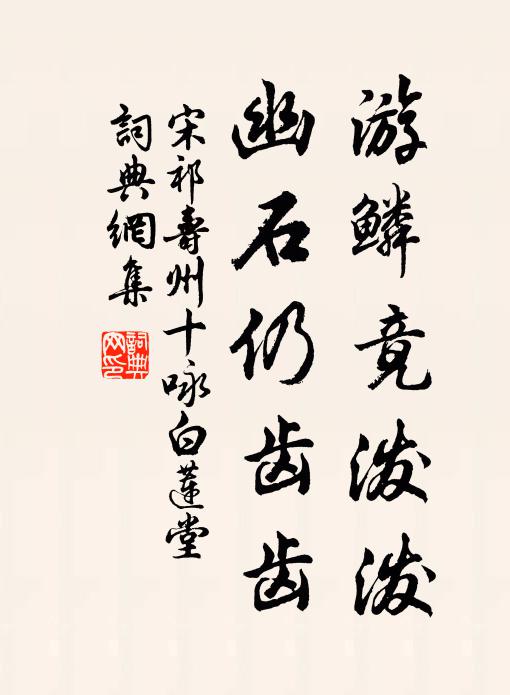 游鳞竟泼泼
幽石仍齿齿
宋祁寿州十咏白莲堂
詞典網集
詞典网印